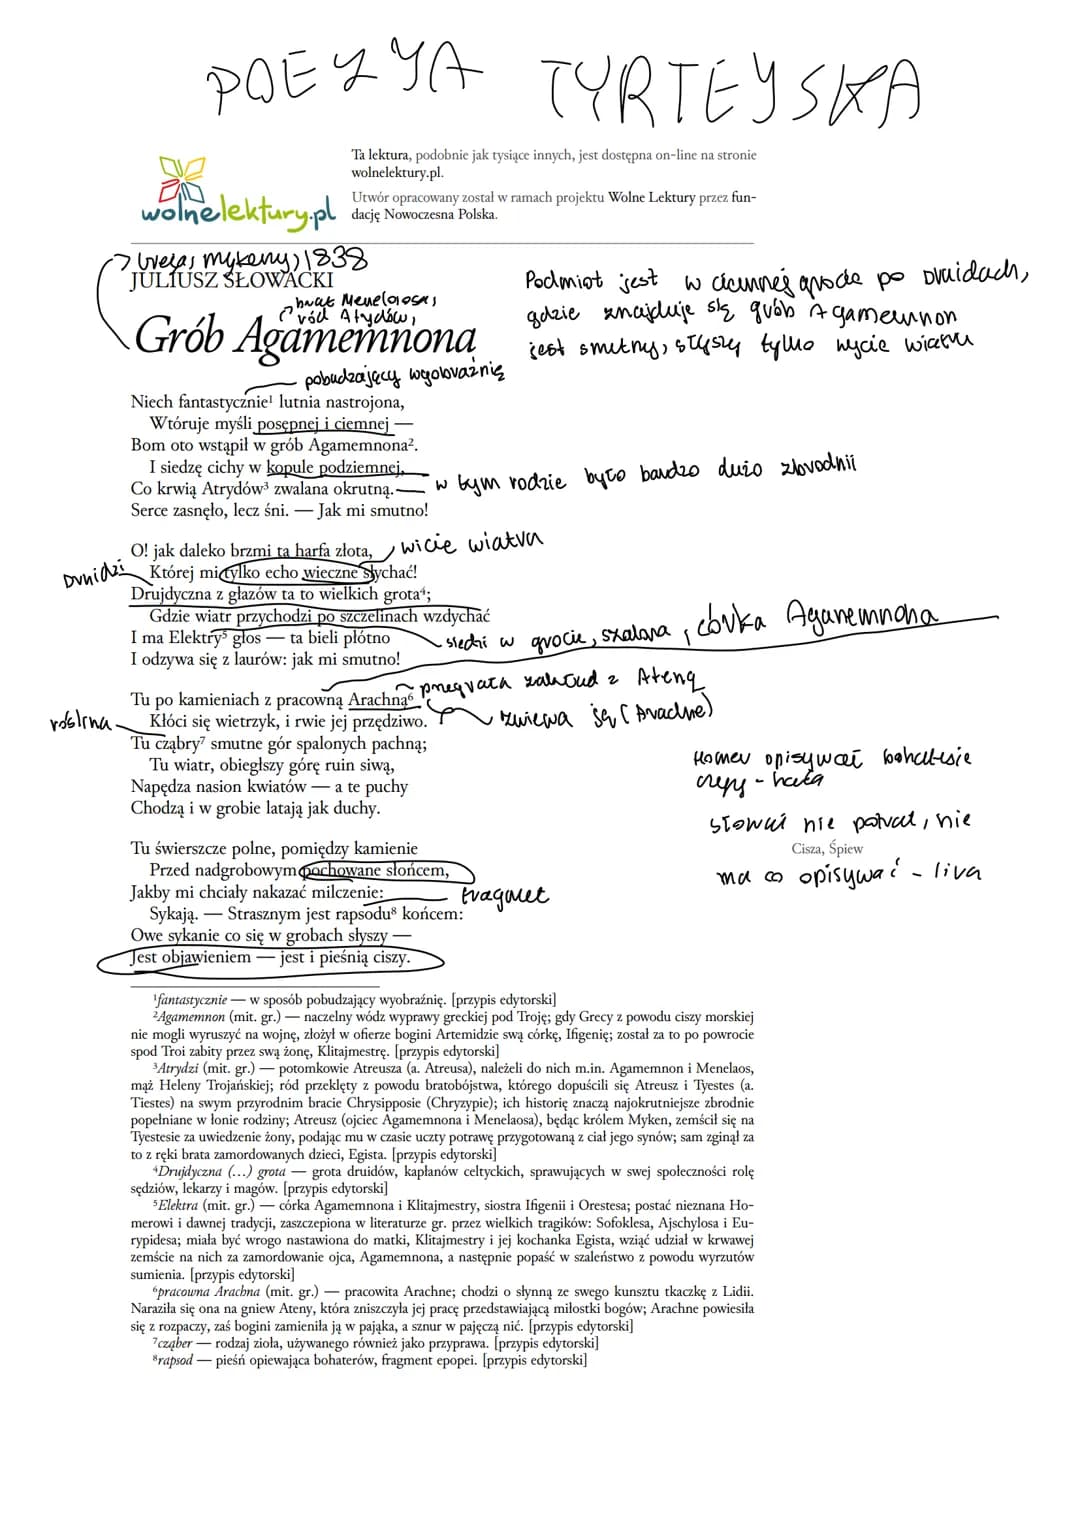 POEZYA TYRTEYSKA
Ta lektura, podobnie jak tysiące innych, jest dostępna on-line na stronie
wolnelektury.pl.
Utwór opracowany został w ramach projektu Wolne Lektury przez fun-
dację Nowoczesna Polska.
wolnelektury.pl
mykeny, 1838
JULIUSZ SŁOWACKI
brat Menelaosa,
ród Atydów,
Grób Agamemnona
Podmiot jest w ciemnej grocie po Druidach,
gdzie znajduje się grób Agamemnon
jest smutny, słyszy tylko wycie wiatru
pobudzający wyobraźnię
Niech fantastycznie¹ lutnia nastrojona,
Wtóruje myśli posępnej i ciemnej —
Bom oto wstąpił w grób Agamemnona².
I siedzę cichy w kopule podziemnej,
Co krwią Atrydów³ zwalana okrutną.
w tym rodzie było bardzo dużo zbrodnii
Serce zasnęło, lecz śni. — Jak mi smutno!
O! jak daleko brzmi ta harfa złota,
wicie wiatra
Druidzi
Której mi tylko echo wieczne słychać!
Drujdyczna z głazów ta to wielkich grota⁴;
Gdzie wiatr przychodzi po szczelinach wzdychać
I ma Elektry⁵ głos — ta bieli płótno
siedzi w grocie, szalona, córka Agamemnona
I odzywa się z laurów: jak mi smutno!
Tu po kamieniach z pracowną Arachną⁶
przegrała zakład z Ateną
Kłóci się wietrzyk, i rwie jej przędziwo.
zwiewa ją (Arachne)
roślina
Tu cząbry⁷ smutne gór spalonych pachną;
Tu wiatr, obiegłszy górę ruin siwą,
Napędza nasion kwiatów — a te puchy
Chodzą i w grobie latają jak duchy.
Homer opisywał bohaterskie
czyny - harfa
słowac nie potraf, nie
Cisza, Śpiew
ma co opisywać - lira
Tu świerszcze polne, pomiędzy kamienie
Przed nadgrobowym pochowane słońcem,
Jakby mi chciały nakazać milczenie:
fragment
Sykają. — Strasznym jest rapsodu⁸ końcem:
Owe sykanie co się w grobach słyszy —
Jest objawieniem — jest i pieśnią ciszy.
¹fantastycznie — w sposób pobudzający wyobraźnię. [przypis edytorski]
²Agamemnon (mit. gr.) — naczelny wódz wyprawy greckiej pod Troję; gdy Grecy z powodu ciszy morskiej
nie mogli wyruszyć na wojnę, złożył w ofierze bogini Artemidzie swą córkę, Ifigenię; został za to po powrocie
spod Troi zabity przez swą żonę, Klitajmestrę. [przypis edytorski]
³Atrydzi (mit. gr.) — potomkowie Atreusza (a. Atreusa), należeli do nich m.in. Agamemnon i Menelaos,
mąż Heleny Trojańskiej; ród przeklęty z powodu bratobójstwa, którego dopuścili się Atreusz i Tyestes (a.
Tiestes) na swym przyrodnim bracie Chrysipposie (Chryzypie); ich historię znaczą najokrutniejsze zbrodnie
popełniane w łonie rodziny; Atreusz (ojciec Agamemnona i Menelaosa), będąc królem Myken, zemścił się na
Tyestesie za uwiedzenie żony, podając mu w czasie uczty potrawę przygotowaną z ciał jego synów; sam zginął za
to z ręki brata zamordowanych dzieci, Egista. [przypis edytorski]
⁴Drujdyczna (...) grota — grota druidów, kapłanów celtyckich, sprawujących w swej społeczności rolę
sędziów, lekarzy i magów. [przypis edytorski]
⁵Elektra (mit. gr.) — córka Agamemnona i Klitajmestry, siostra Ifigenii i Orestesa; postać nieznana Ho-
merowi i dawnej tradycji, zaszczepiona w literaturze gr. przez wielkich tragików: Sofoklesa, Ajschylosa i Eu-
rypidesa; miała być wrogo nastawiona do matki, Klitajmestry i jej kochanka Egista, wziąć udział w krwawej
zemście na nich za zamordowanie ojca, Agamemnona, a następnie popaść w szaleństwo z powodu wyrzutów
sumienia. [przypis edytorski]
⁶pracowna Arachna (mit. gr.) — pracowita Arachne; chodzi o słynną ze swego kunsztu tkaczkę z Lidii.
Naraziła się ona na gniew Ateny, która zniszczyła jej pracę przedstawiającą miłostki bogów; Arachne powiesiła
się z rozpaczy, zaś bogini zamieniła ją w pająka, a sznur w pajęczą nić. [przypis edytorski]
⁷cząber — rodzaj zioła, używanego również jako przyprawa. [przypis edytorski]
⁸rapsod — pieśń opiewająca bohaterów, fragment epopei. [przypis edytorski]